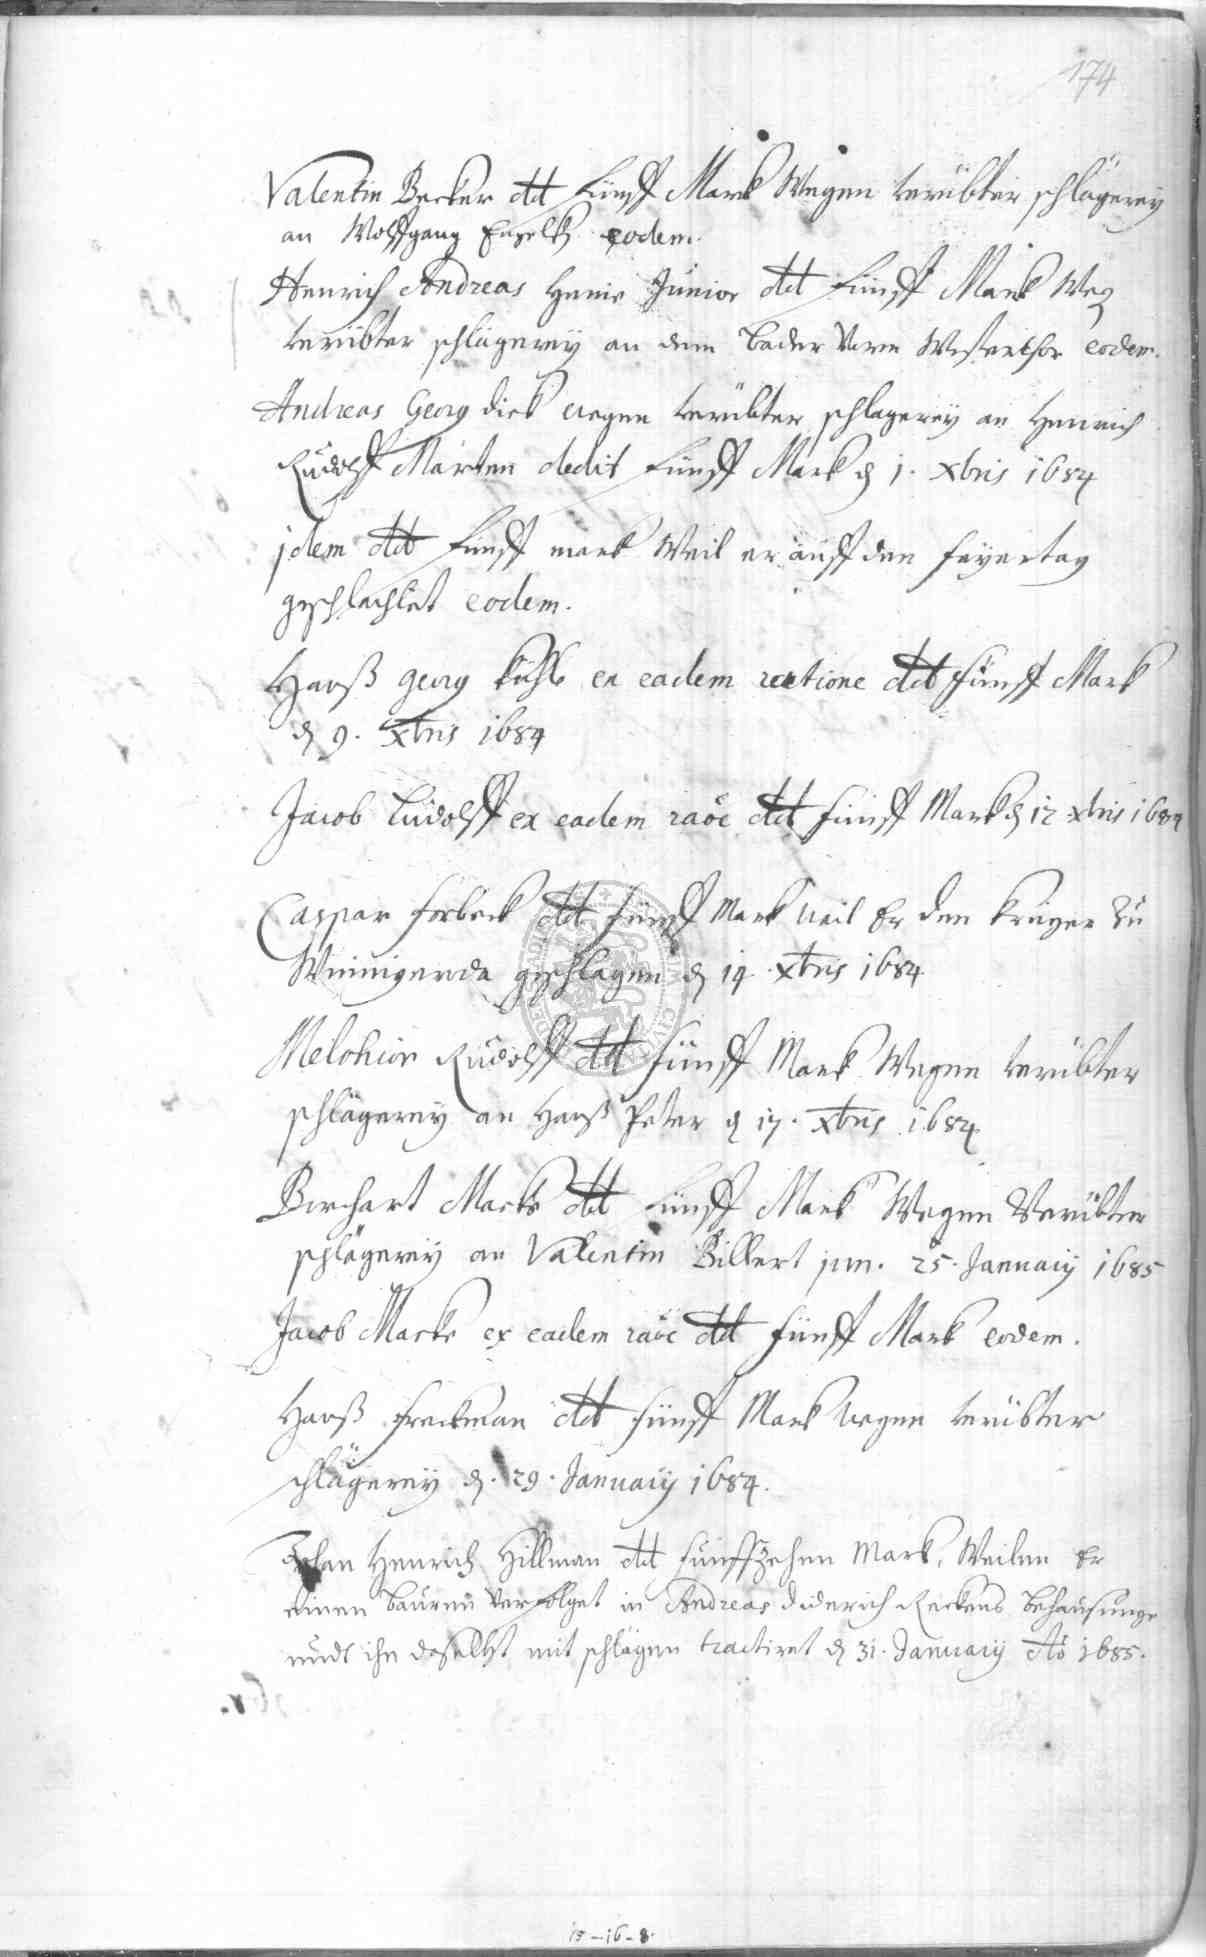 174
Valentin Becker dt fünff Mark Wegen verübter schlägereÿ
an Wolffgang Engelk eodem.
Henrich Andreas Junior dt fünff Mark Weg
verübter schlägereÿ an dem bader Vorm Westerthor eodem.
Andreas Georg dick wegen verübter schlagereÿ an Henrich
Rudolff Märten dedit fünff Mark d 1. Xbris 1684
jdem dt fünff mark Weil er auff den feyertag
geschlachtet eodem.
Hanß georg ex eadem ratione dt fünff Mark
d 9. Xbris 1684
Jacob Ludolff ex eadem raõe dt fünff Mark d 12 Xbris 1684
Caspar forbeck dt fünff Mark weil Er den krüger Zu
Winnigerode geschlagen d 14. Xbris 1684
Melchior Rudolff dt fünff Mark Wegen verübter
schlägereÿ an Hanß Peter d 17. Xbris 1684
Borchart Macke dt fünff Mark Wegen Verübter
schlägereÿ an Valentin Billert jun. 25. Januarÿ 1685
Jacob Macke ex eadem raõe dt fünff Mark eodem.
Hanß freckman dt fünff Mark wegen verübter
schlägereÿ d. 29. Januarÿ 1684.
Johan Henrich Hillman dt funffzehen Mark, Weilen Er
einen bauren Verfolget in Andreas diderich Reckens behausunge
undt ihn daselbst mit schlägen tractiret d 31. Januarÿ Aõ 1685.
15-16-8.